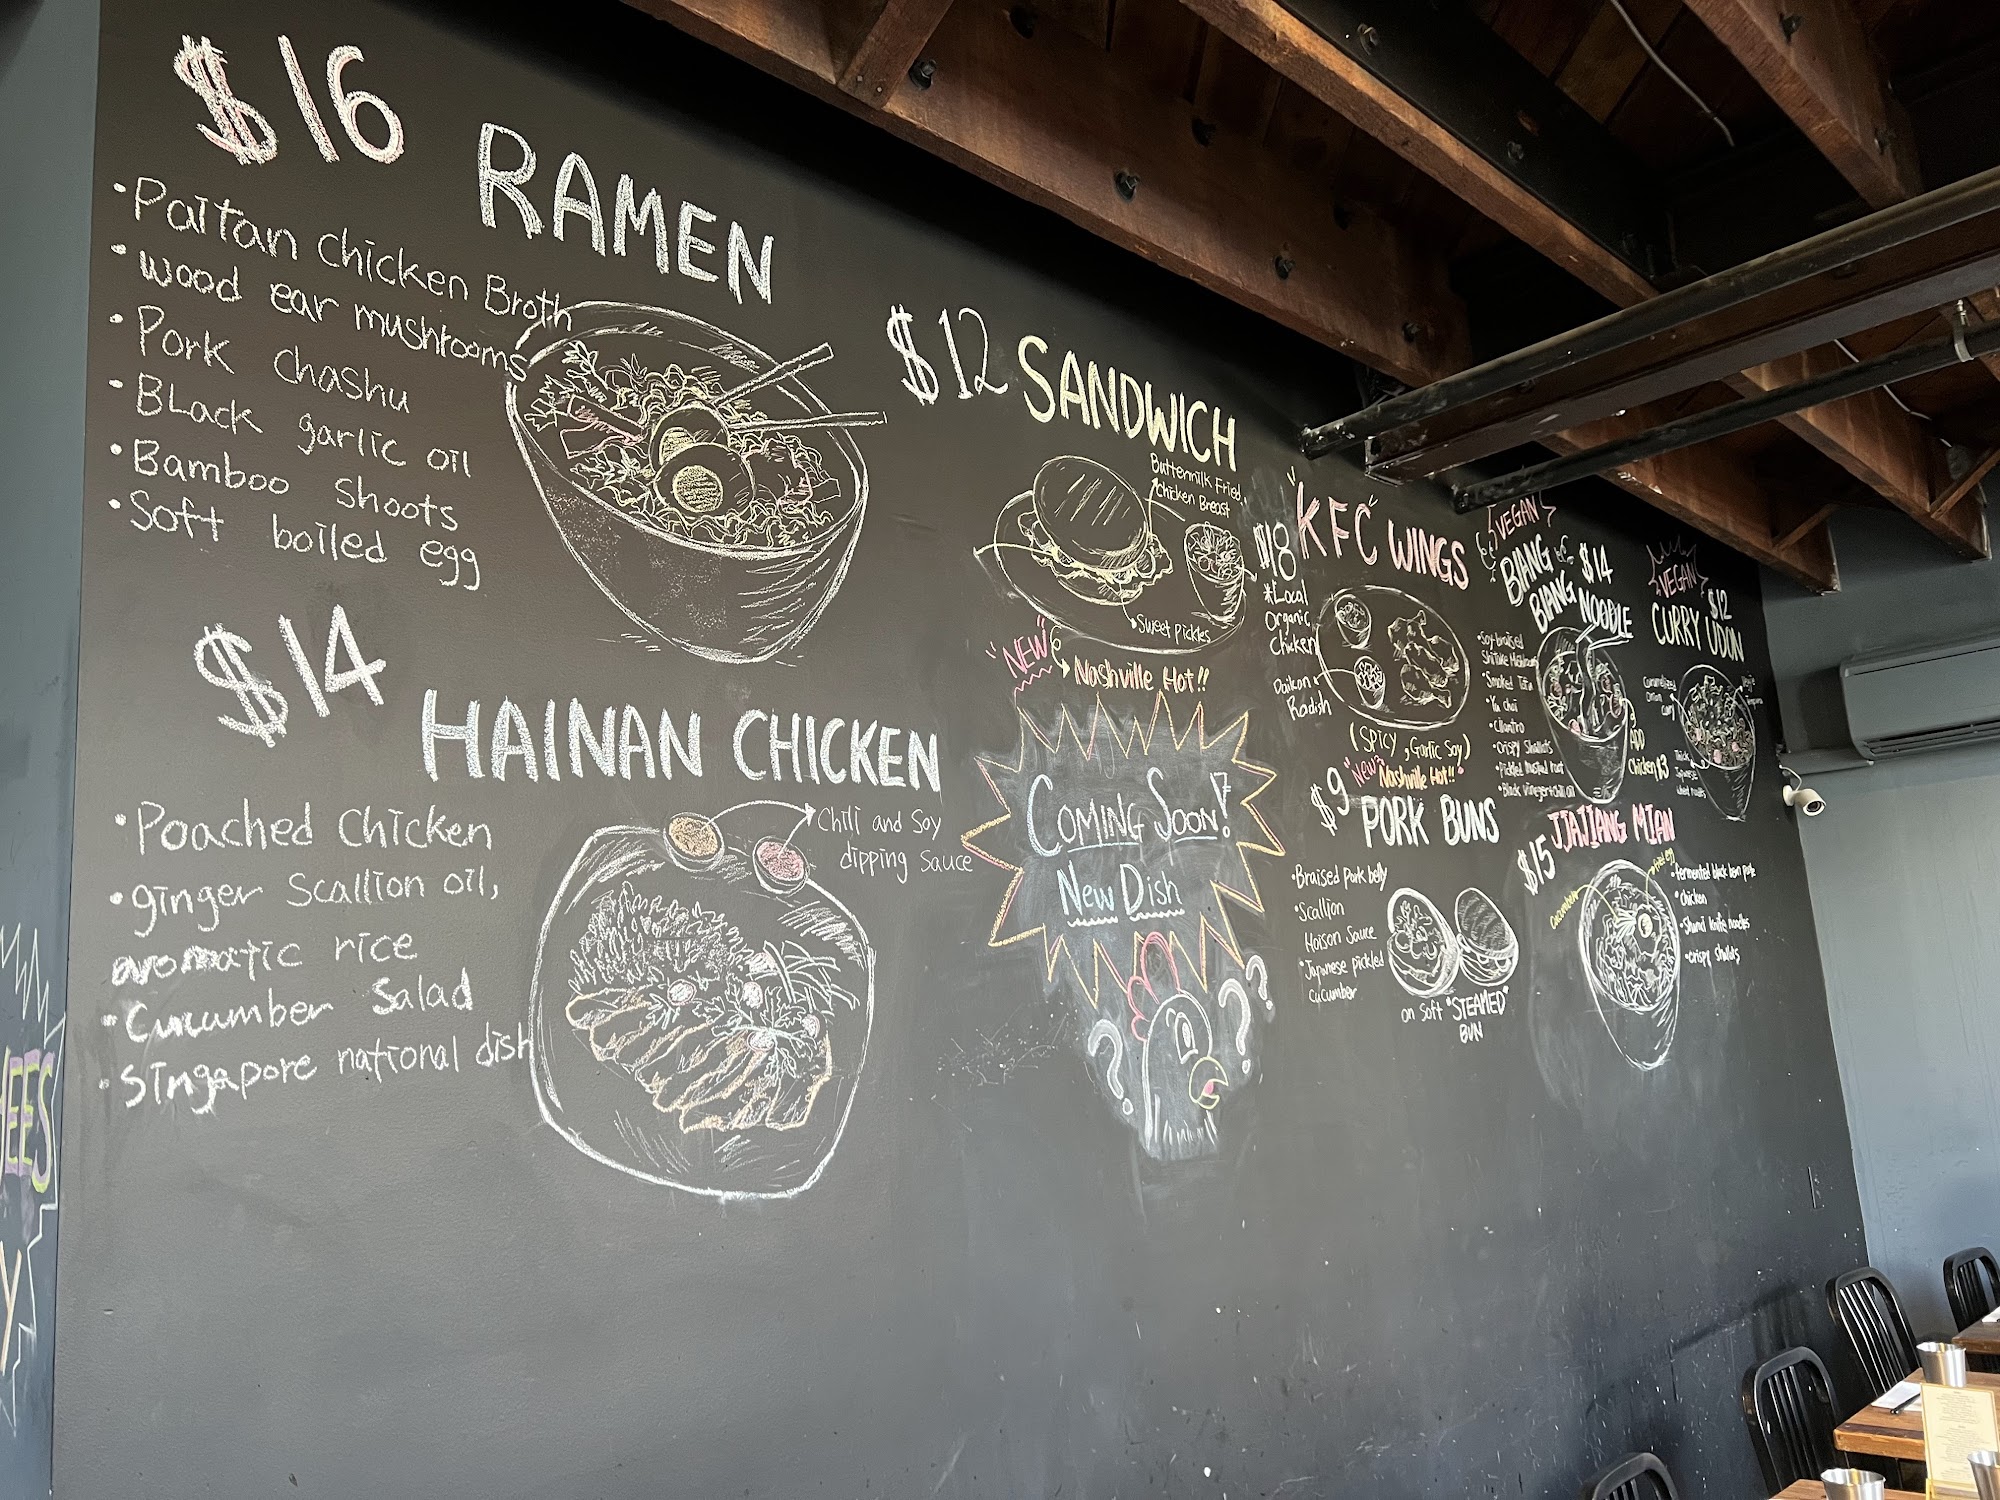 $16
RAMEN
• Paitan Chicken Broth
• wood ear mushrooms
• Pork chashu
• BLack garlic oil
• Bamboo shoots
• Soft boiled egg
$14
HAINAN CHICKEN
• Poached Chicken
• ginger Scallion oil,
aromatic rice
• Cucumber Salad
• Singapore national dish
Chili and Soy
dipping Sauce
$12 SANDWICH
Buttermilk Fried
Chicken Breast
Sweet pickles
NEW
Nashville Hot!!
COMING SOON!
New Dish
? ? ?
$18
"KFC" WINGS
*Local
Organic
Chicken
Daikon
Radish
(SPICY, Garlic Soy)
"New" Nashville Hot!!
$9
PORK BUNS
• Braised pork belly
• Scallion
Hoison Sauce
• Japanese pickled
cucumber
on Soft "STEAMED"
BUN
VEGAN
BIANG
BIANG
$14
NOODLE
• Soy-braised
• Smoked
• Yu choi
• Cilantro
• Crispy Shallots
• Pickled mustard root
• Black Vinegar + Chili oil
ADD
Chicken $3
VEGAN
$12
CURRY UDON
Caramelized
onion
curry
Thick
Japanese
wheat noodles
JJAJIANG MIAN
$15
Cucumber
fried egg
• fermented black bean
• Chicken
• Shanxi Knife noodles
• crispy
EES
Y